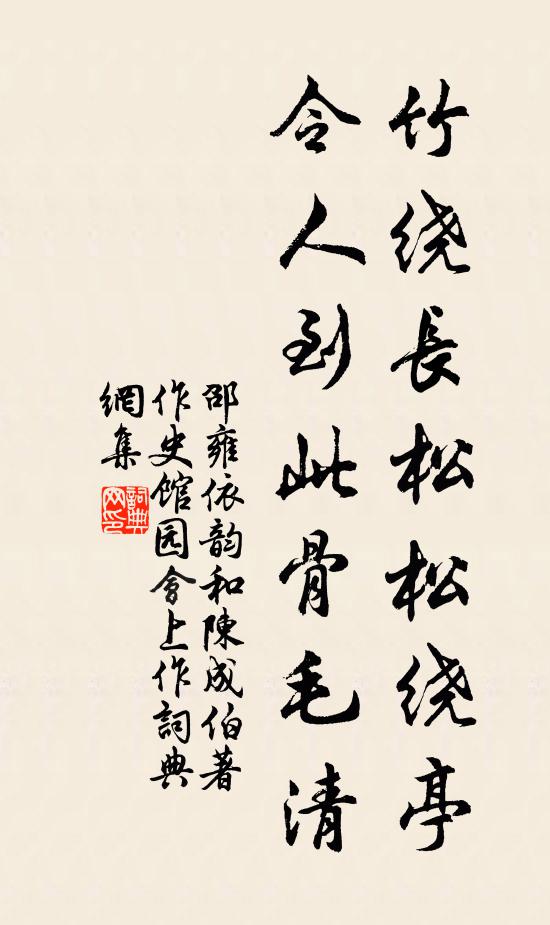 竹绕長松松绕亭
令人到此骨毛清
邵雍依韵和陳成伯著
作史馆园會上作詞典
網集
詞典网印